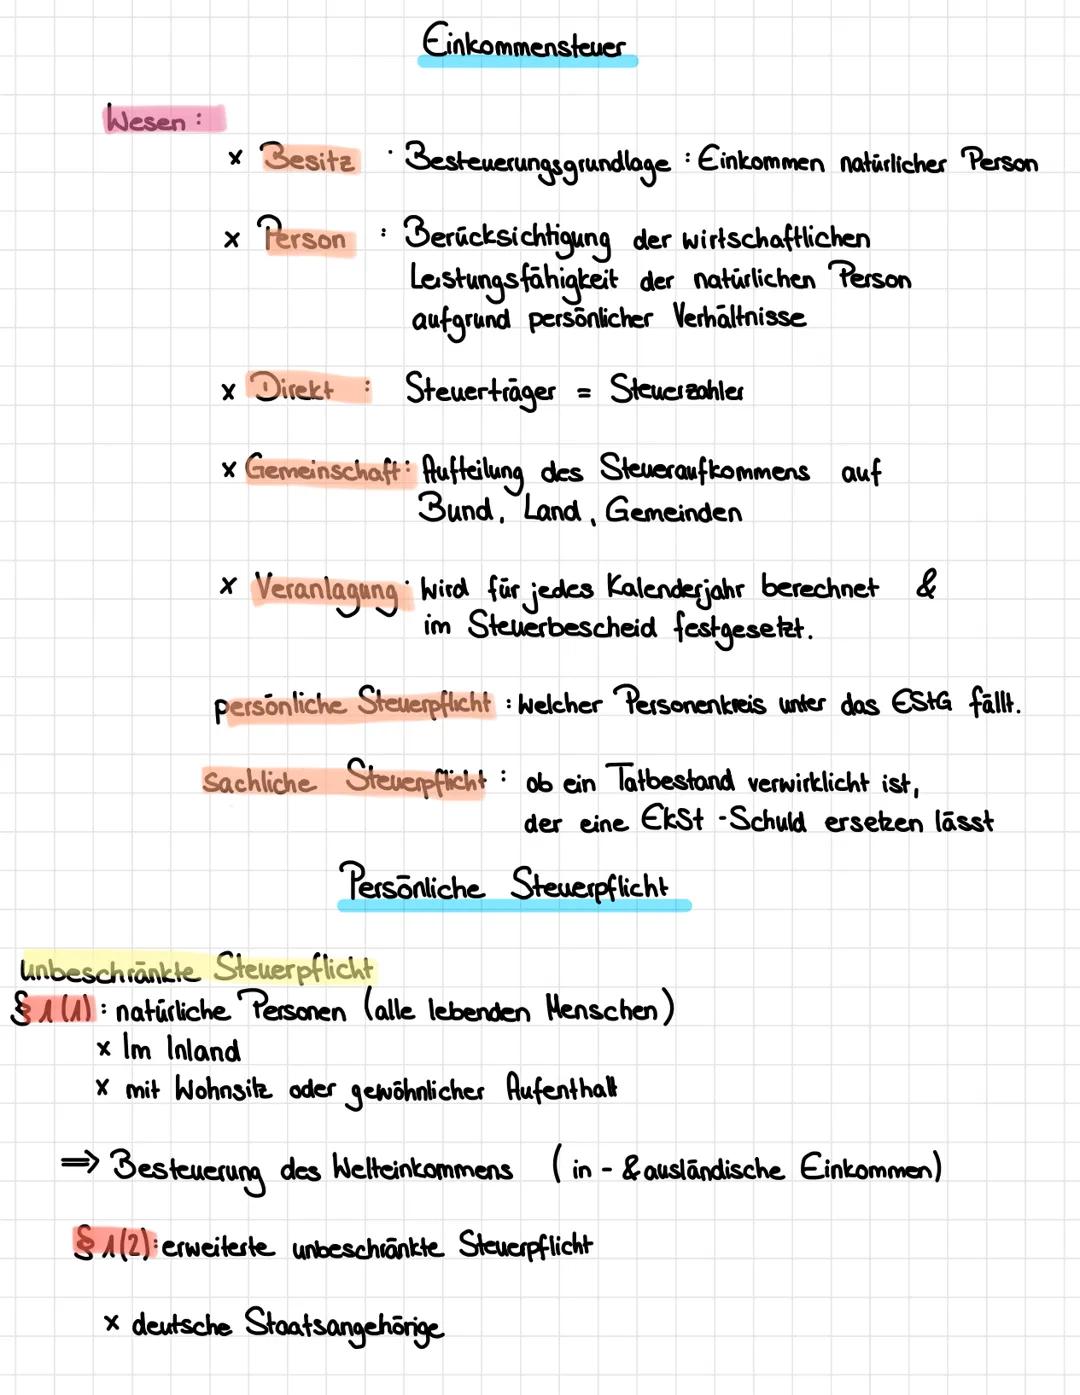 Einkommensteuer
Wesen :
x Besitz : Besteuerungsgrundlage : Einkommen natürlicher Person
x Person : Berücksichtigung der wirtschaftlichen
Leistungsfähigkeit der natürlichen Person
aufgrund persönlicher Verhältnisse
x Direkt : Steuerträger = Steuerzahler
x Gemeinschaft : Aufteilung des Steueraufkommens auf
Bund, Land, Gemeinden
x Veranlagung : wird für jedes Kalenderjahr berechnet &
im Steuerbescheid festgesetzt.
persönliche Steuerpflicht : Welcher Personenkreis unter das EStG fällt.
Sachliche Steuerpflicht : ob ein Tatbestand verwirklicht ist,
der eine EkSt - Schuld ersetzen lässt
Persönliche Steuerpflicht
unbeschränkte Steuerpflicht
§ 1 (1) : natürliche Personen (alle lebenden Menschen)
x Im Inland
x mit Wohnsitz oder gewöhnlicher Aufenthalt
⇒ Besteuerung des Welteinkommens (in - & ausländische Einkommen)
§ 1 (2) : erweiterte unbeschränkte Steuerpflicht
x deutsche Staatsangehörige